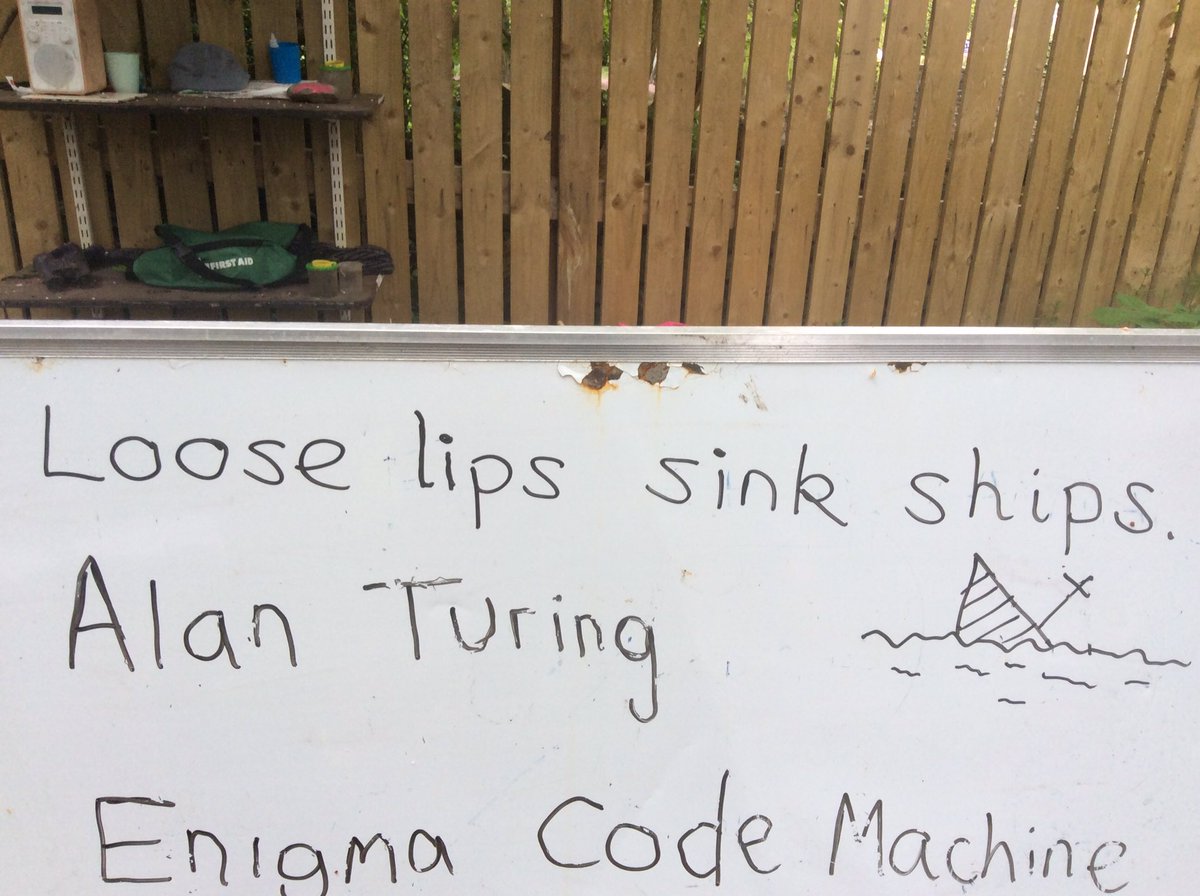 FIRST AID
Loose lips sink ships.
Alan Turing
Enigma Code Machine